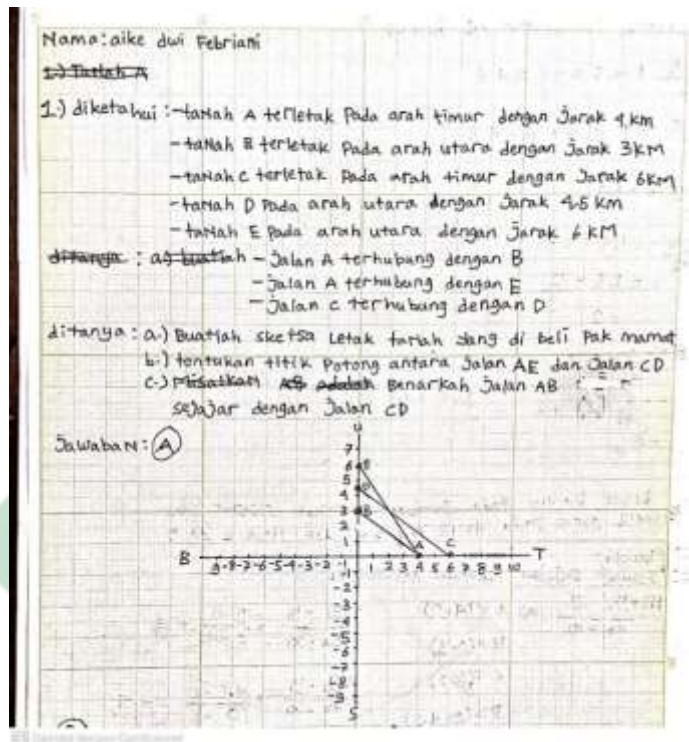 Nama: aike dwi Febriani
1.) Tanah A
1.) diketahui : - tanah A terletak Pada arah timur dengan Jarak 4 km
- tanah B terletak Pada arah utara dengan Jarak 3 KM
- tanah C terletak Pada arah timur dengan Jarak 6 KM
- tanah D Pada arah utara dengan Jarak 4.5 KM
- tanah E Pada arah utara dengan Jarak 6 KM
ditanya : a.) buatlah - Jalan A terhubung dengan B
- Jalan A terhubung dengan E
- Jalan C terhubung dengan D
ditanya : a.) Buatlah sketsa Letak tanah yang di beli Pak mamat
b.) tentukan titik Potong antara Jalan AE dan Jalan CD
c.) Misalkan AB adalah Benarkah Jalan AB
sejajar dengan Jalan CD
JawabaN : A
U
7
6 E
5
4 D
3 B
2
1 A C
B -9 -8 -7 -6 -5 -4 -3 -2 -1 1 2 3 4 5 6 7 8 9 10 T
-1
-2
-3
-4
-5
-6
-7
-8
-9
S